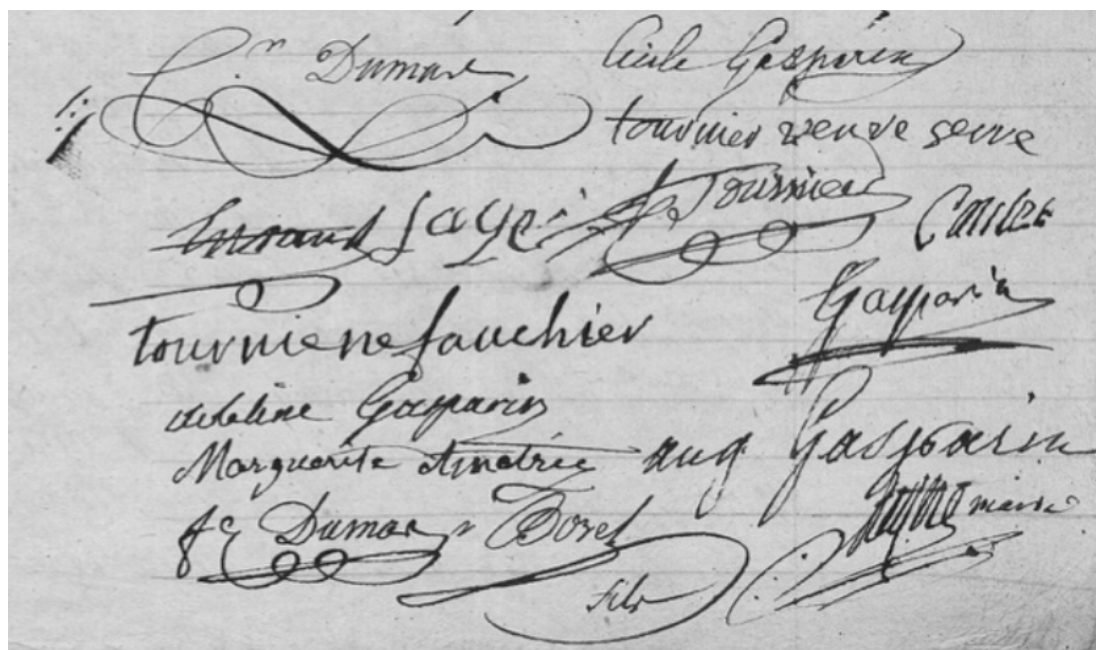 C.n Dumas Cécile Gasparin
tournier veuve serre
Durand Layé Tournier Combe
tourniere fauchier Gasparin
adeline Gasparin
Marguerite Andrée aug Gasparin
Dumas n Borel maire
fils